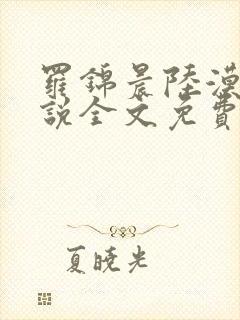 羅錦晨陸漠
說全文免費
夏曉光